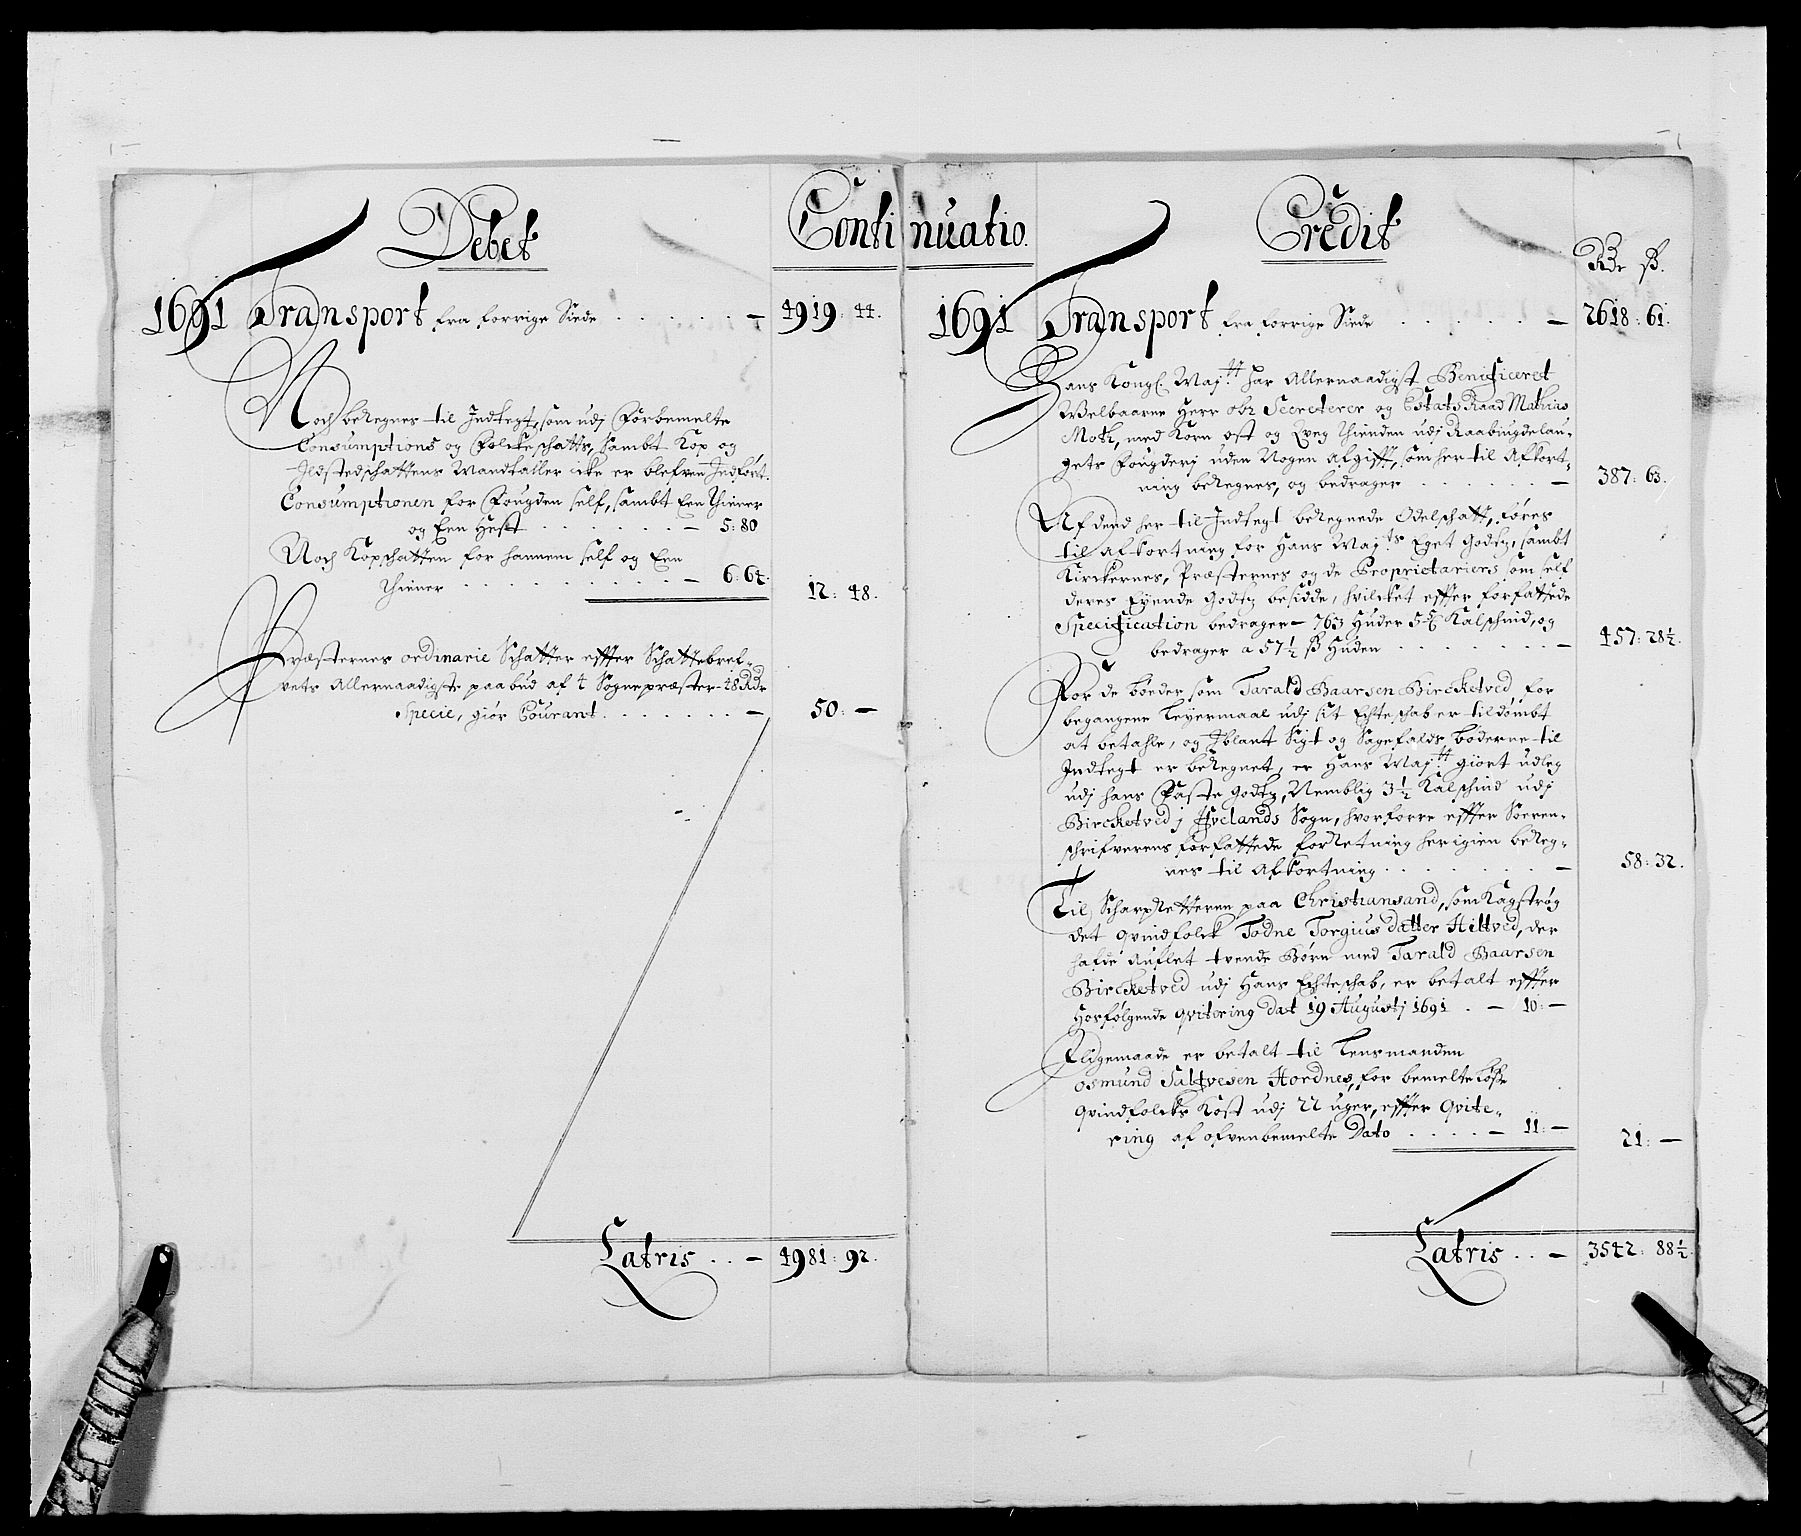 Debet
Continuatio.
1691 Transport fra forrige Siede . . . . . . — 4919: 44.
Noch beRegnes til Indtegt, som udj Forbemelte
Consumptions og Folckeschatts, sambt Kop og
Ildstedschattens Mandtaller icke er blefven Indført.
Consumptionen for Fougden self, sambt Een thiener
og Een Hest . . . . . . . — 5: 80
Noch Kopschatten for hannem self og Een
thiener . . . . . . . . . . — 6: 64.
12: 48.
Præsternes ordinarie Schatter effter Schattebref-
vets Allernaadigste paabud af 4 Sognepræster - 48 Rdr
Specie, giør Courant . . . . . . — 50: —
Latris . . — 4981: 92.
Credit
Rdr ß.
1691 Transport fra forrige Siede . . . . . — 2618: 61.
Hans Kongl. Maj.tt har Allernaadigst Benificeret
Welbaarne Herr obr Secreterer og Estats Raad Mathias
Moth, med Korn ost og Qveg thienden udj Raabiugdelau-
gets Fougderj uden Nogen afgifft, som her til Afkort-
ning beRegnes, og bedrager . . . . . . — 387: 63.
Af dend her til Indtegt beRegnede Odelschatt, føres
til Afkortning for Hans Maj.ts Eget Godtz, sambt
Kirckernes, Præsternes og de Proprietariers som self
deres Eyende Godtz besidde, hvilcket effter forfattede
Specification bedrager — 763 Huder 5 5/6 Kalschind, og
bedrager a 57 1/2 ß Huden . . . . . . . — 457: 28 1/2.
For de bøeder som Tarald Baarsen Bircketved for
begangene Leyermaal udj sit Echteschab er tildømbt
at betahle, og Iblant Sigt og Sagefalds bøderne til
Indtegt er beRegnet, er Hans Maj.tt giort udleg
udj hans Faste Godtz, Nemblig 3 1/2 Kalschind udj
Bircketved j Hvelands Sogn, hvorforre effter Soeren-
schrifverens forfattede forRetning herigien beReg-
nes til Afkortning . . . . . . . — 58: 32.
Til Scharpretteren paa Christiansand, som Kagstrøg
det qvindfolck Todne Torgius datter Hiltved, der
hafde Auflet tvende Børn med Tarald Baarsen
Bircketved udj Hans Echteschab, er betalt effter
Hosfølgende qvitering dat 19 Augustj 1691 . — 10: —
Eligemaade er betalt til Lensmanden
Osmund Saltvesen Hordnes, for bemelte løsse
qvindfolcks Kost udj 22 uger, effter Qvite-
ring af ofvenbemelte Dato . . . . — 11: —
21: —
Latris . . — 3542: 88 1/2.